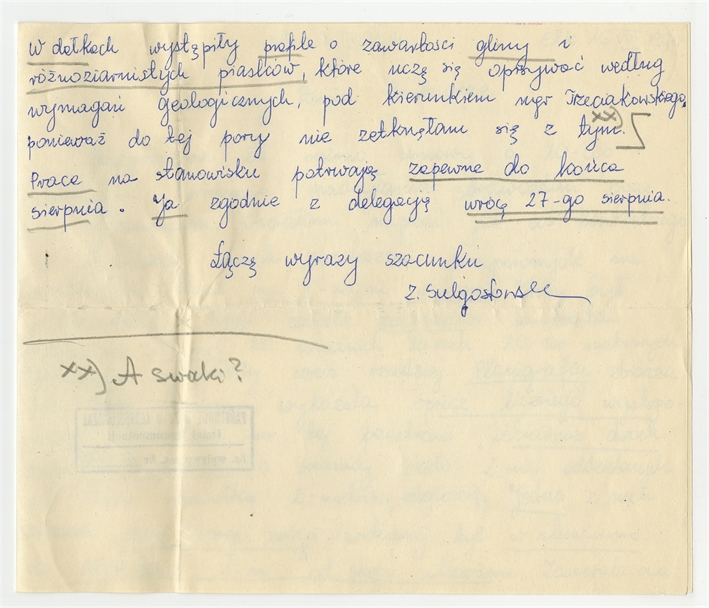 W dołkach wystąpiły profile o zawartości gliny i
różnoziarnistych piasków, które uczę się opisywać według
wymagań geologicznych, pod kierunkiem mgr Trzeciakowskiego,
ponieważ do tej pory nie zetknęłam się z tym.
xx)
Praca na stanowisku potrwają zapewne do końca
sierpnia. Ja zgodnie z delegacją wrócę 27-go sierpnia.
Łączę wyrazy szacunku
Z. Sulgostowska
xx) A Swaki?